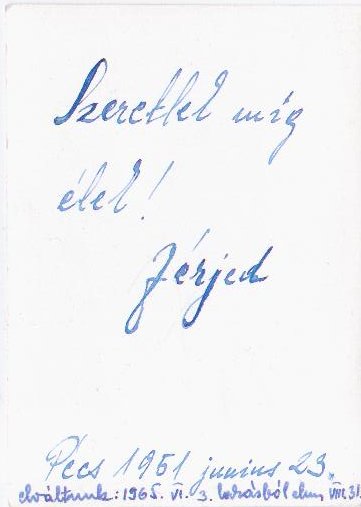 Szeretlek míg
élek!
Férjed
Pécs 1951 junius 23.
elváltunk: 1965. VI. 3. lakásból elm. VIII. 31.